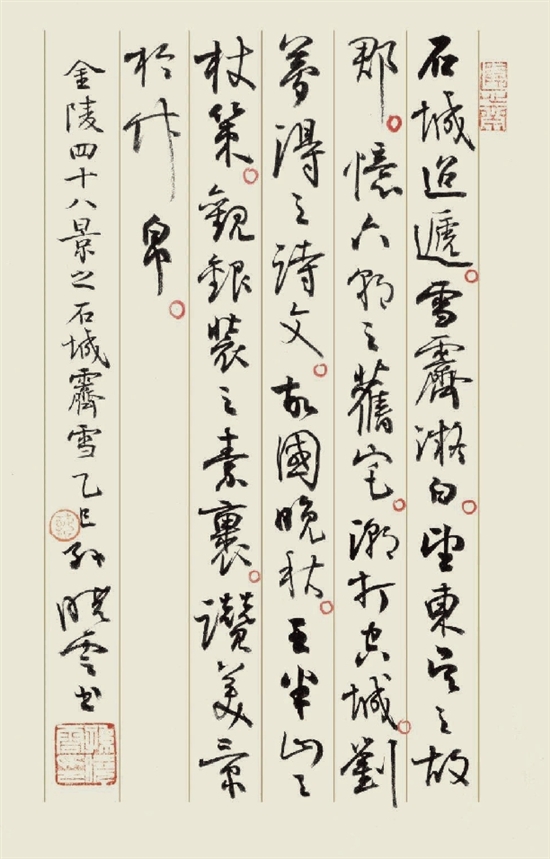 石城迢遞。雪霽凝白。望東吳之故
郡。憶六朝之舊宅。潮打空城。劉
夢得之詩文。故國晚秋。王半山之
杖策。觀銀裝之素裹。讚美景
於竹帛。
金陵四十八景之石城霽雪 乙巳 孫曉雲書